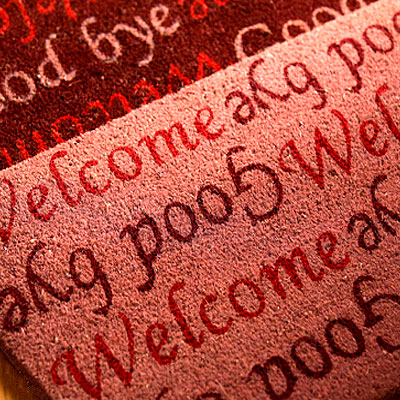 Good bye
Welcome
Good
Welcome Good bye
Good bye Welcome
Good bye
Welcome
Good